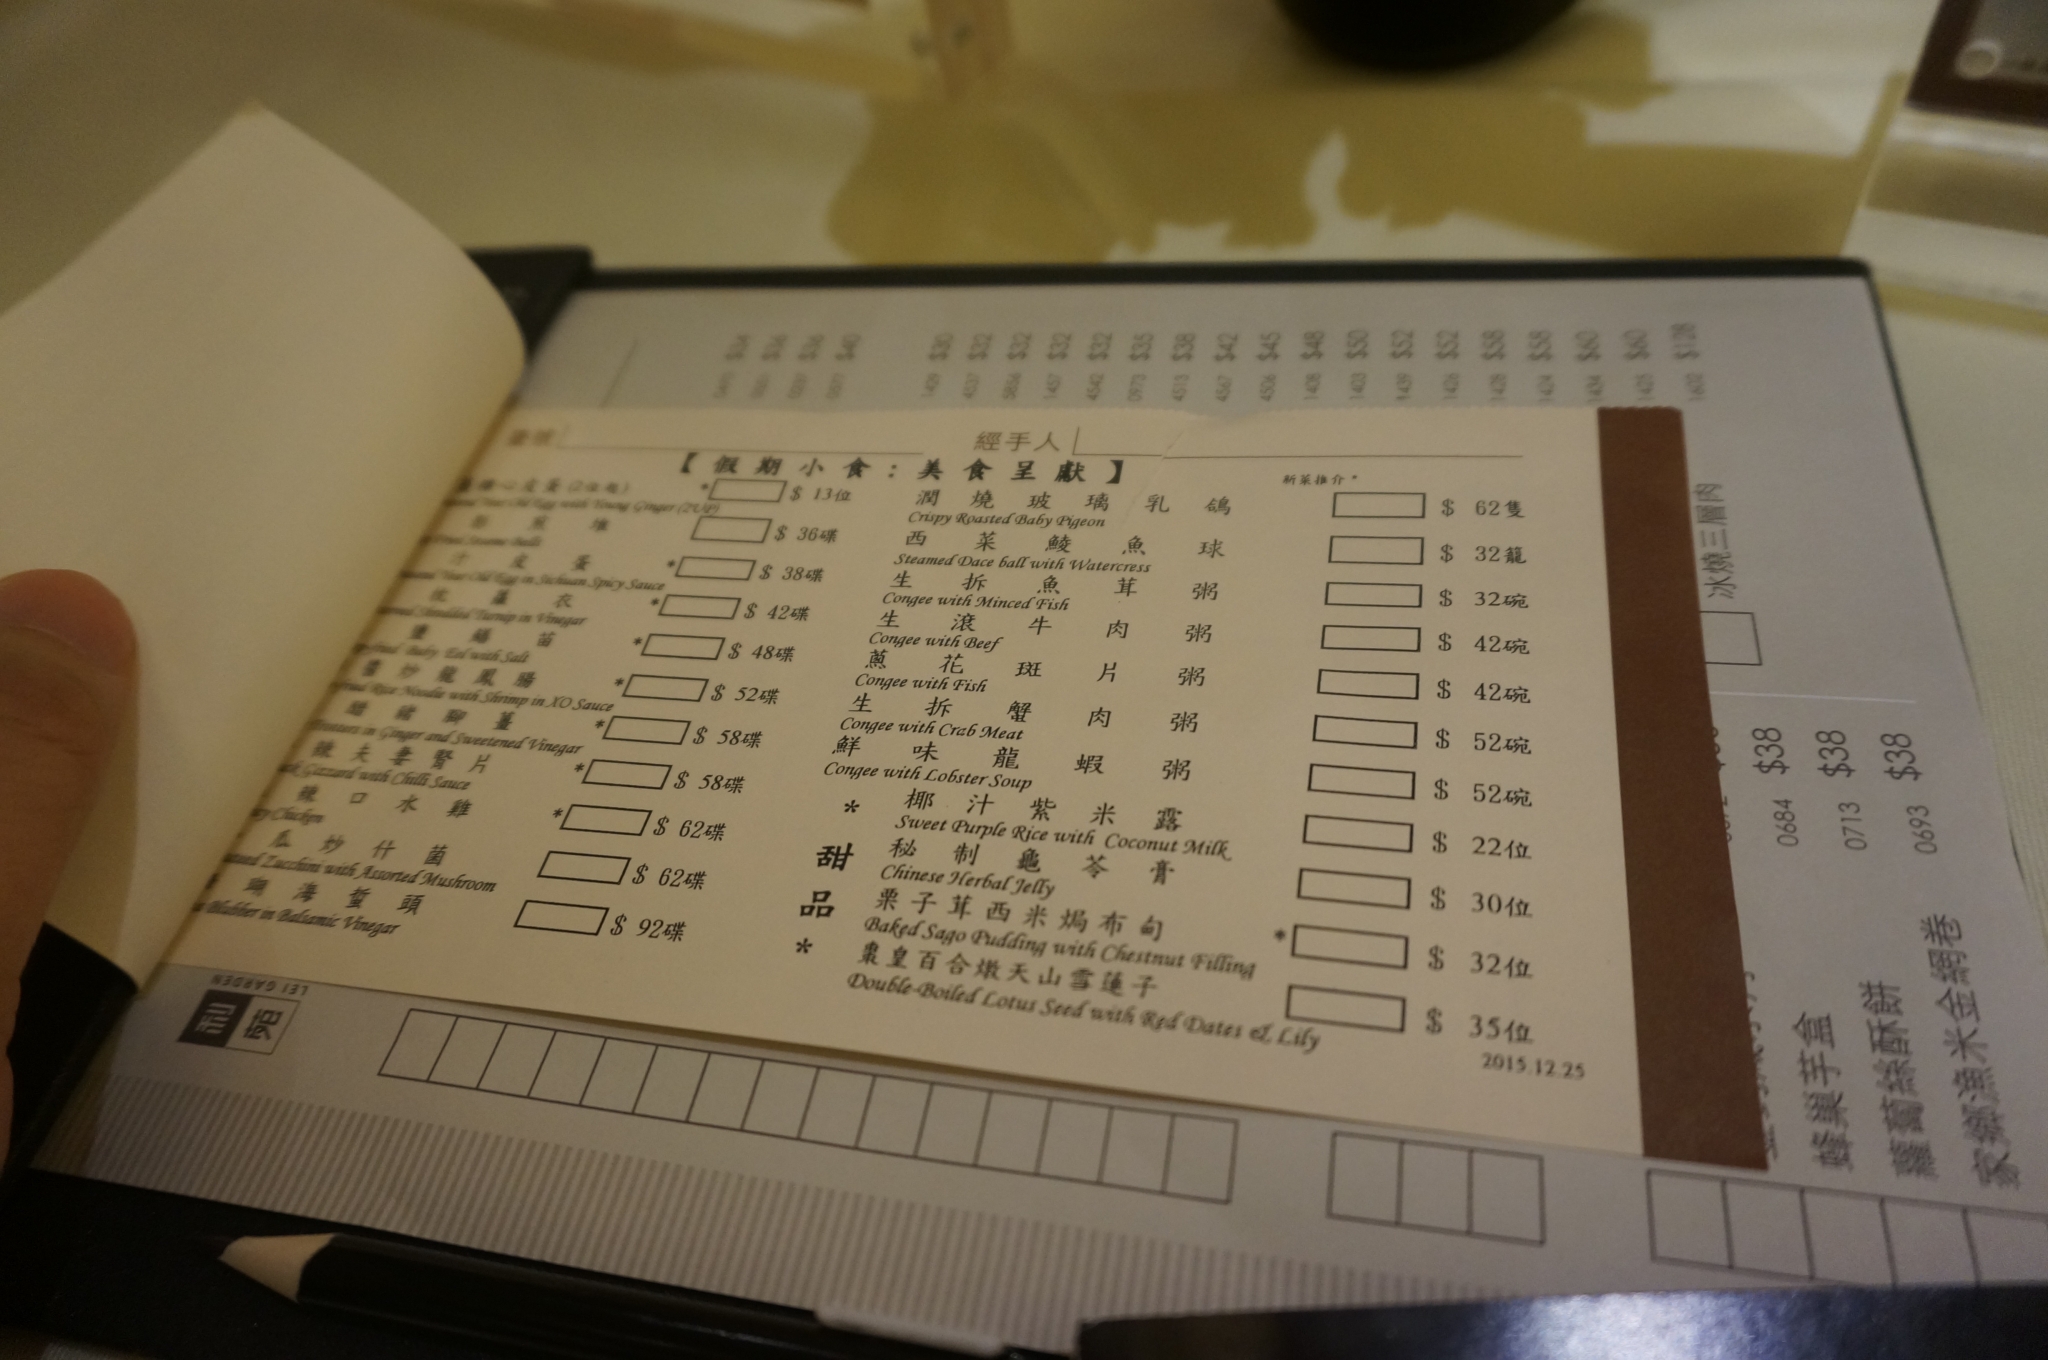 $34
$36
$36
$40
$30
$32
$32
$32
$32
$35
$38
$42
$45
$48
$50
$52
$52
$58
$58
$60
$60
$128
1409
4537
1457
4542
0973
4513
4567
4506
1408
1403
1426
1428
1424
1434
1425
1602
經手人
【假期小食：美食呈獻】
新菜推介*
心皮蛋(2位起) * $ 13位
Year Old Egg with Young Ginger (2UP)
煎堆 $ 36碟
Sesame Balls
汁皮蛋 * $ 38碟
Year Old Egg in Sichuan Spicy Sauce
蘿衣 * $ 42碟
Shredded Turnip in Vinegar
* $ 48碟
Baby Eel with Salt
醬炒龍鳳腸 * $ 52碟
Rice Noodle with Shrimp in XO Sauce
醋豬腳薑 * $ 58碟
Trotters in Ginger and Sweetened Vinegar
辣夫妻腎片 * $ 58碟
Gizzard with Chilli Sauce
辣口水雞 * $ 62碟
Chicken
瓜炒什菌 $ 62碟
Zucchini with Assorted Mushroom
瑚海蜇頭 $ 92碟
Blubber in Balsamic Vinegar
潤燒玻璃乳鴿 $ 62隻
Crispy Roasted Baby Pigeon
西菜鯪魚球 $ 32籠
Steamed Dace ball with Watercress
生拆魚茸粥 $ 32碗
Congee with Minced Fish
生滾牛肉粥 $ 42碗
Congee with Beef
蔥花斑片粥 $ 42碗
Congee with Fish
生拆蟹肉粥 $ 52碗
Congee with Crab Meat
鮮味龍蝦粥 $ 52碗
Congee with Lobster Soup
*甜品*
椰汁紫米露 $ 22位
Sweet Purple Rice with Coconut Milk
秘制龜苓膏 $ 30位
Chinese Herbal Jelly
栗子茸西米焗布甸 * $ 32位
Baked Sago Pudding with Chestnut Filling
棗皇百合燉天山雪蓮子 $ 35位
Double-Boiled Lotus Seed with Red Dates & Lily
2015.12.25
利苑
LEI GARDEN
冰燒三層肉
蜂巢芋盒 0684 $38
蘿蔔絲酥餅 0713 $38
家鄉漁米金網卷 0693 $38